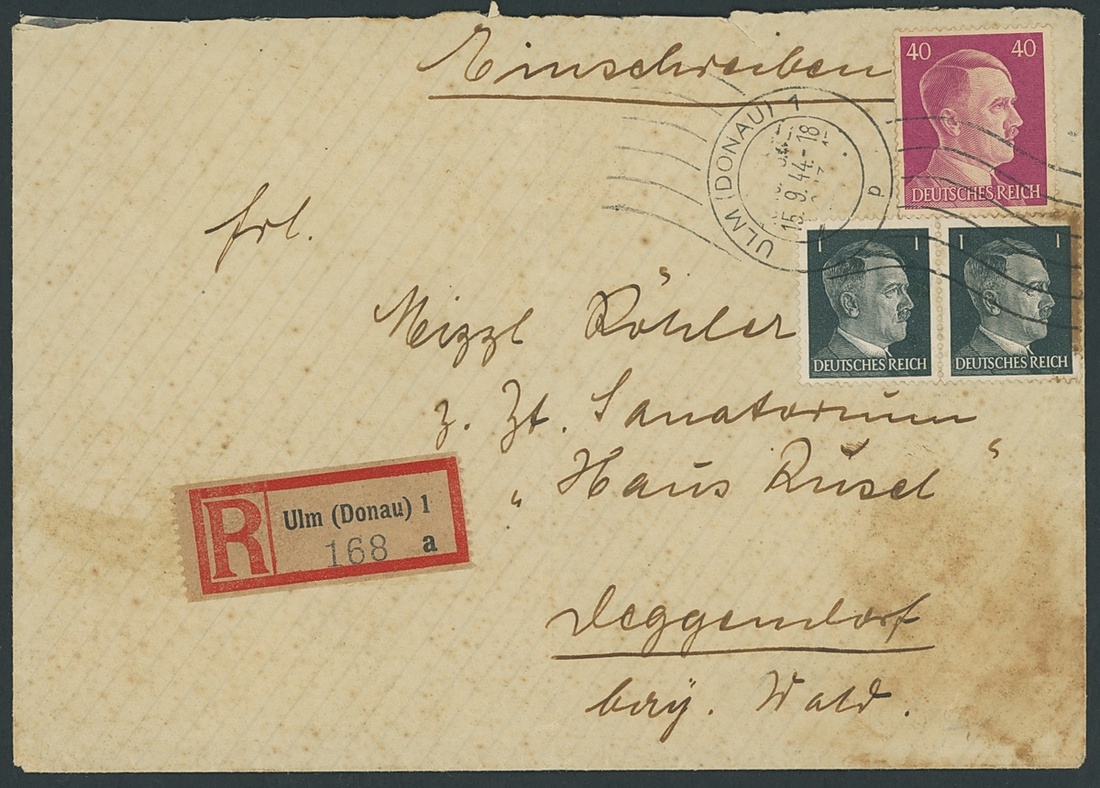 Einschreiben
40 40
DEUTSCHES REICH
ULM (DONAU) 1
15.9.44.-18
p
1 1
DEUTSCHES REICH
1 1
DEUTSCHES REICH
Frl.
Mizzl Röhler
z. Zt. Sanatorium
„Haus Rusel“
R
Ulm (Donau) 1
168 a
Deggendorf
bay. Wald.